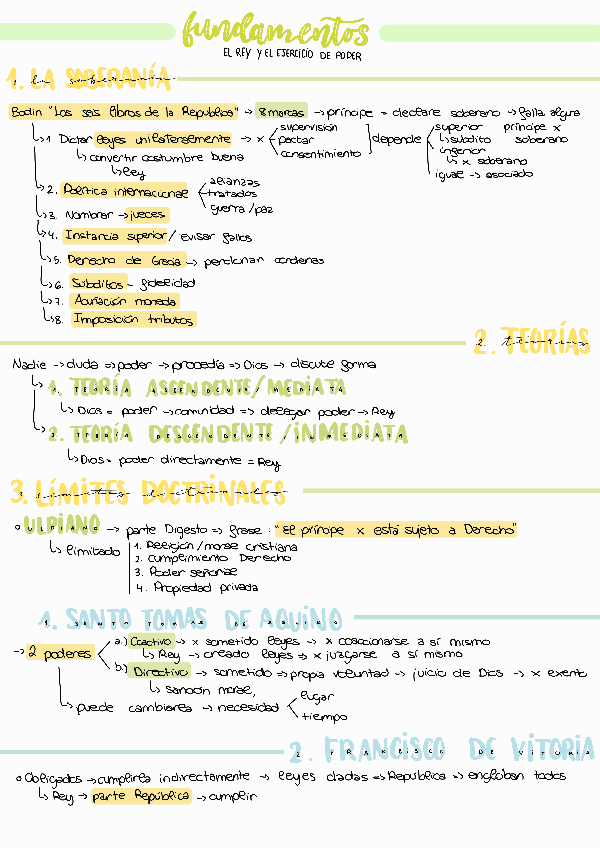 fundamentos
EL REY Y EL EJERCICIO DE PODER
1. LA SOBERANÍA
Bodin "Los seis libros de la Republica" → 8 marcas → príncipe = declare soberano → falla alguna
↳ 1. Dictar leyes unilateralmente → x
supervisión
pactar
consentimiento
depende
superior príncipe x
↳ súbdito soberano
inferior
↳ x soberano
igual → asociado
↳ convertir costumbre buena
↳ ley
↳ 2. Política internacional
alianzas
tratados
guerra/paz
↳ 3. Nombrar → jueces
↳ 4. Instancia superior / evisar fallos
↳ 5. Derecho de Gracia → perdonan condenas
↳ 6. Súbditos - fidelidad
↳ 7. Acuñación moneda
↳ 8. Imposición tributos
2. TEORÍAS
Nadie → duda ⇒ poder → procedía ⇒ Dios → discute forma
↳ 1. TEORÍA ASCENDENTE/MEDIATA
↳ Dios = poder → comunidad ⇒ delegar poder → Rey
↳ 2. TEORÍA DESCENDENTE/INMEDIATA
↳ Dios = poder directamente = Rey
3. LÍMITES DOCTRINALES
o ULPIANO → parte Digesto ⇒ frase: "El prínipe x está sujeto a Derecho"
↳ limitado
1. Religión/moral cristiana
2. Cumplimiento Derecho
3. Poder señorial
4. Propiedad privada
1. SANTO TOMAS DE AQUINO
→ 2 poderes
a.) Coactivo → x sometido leyes → x coaccionarse a sí mismo
↳ Rey → creado leyes ⇒ x juzgarse a sí mismo
b.) Directivo → sometido ⇒ propia voluntad → juicio de Dios → x exento
↳ sanción moral,
↳ puede cambiarla → necesidad
lugar
tiempo
2. FRANCISCO DE VITORIA
o Obligados → cumplirla indirectamente → leyes dadas ⇒ Republica ⇒ engloban todos
↳ Rey → parte República → cumplir